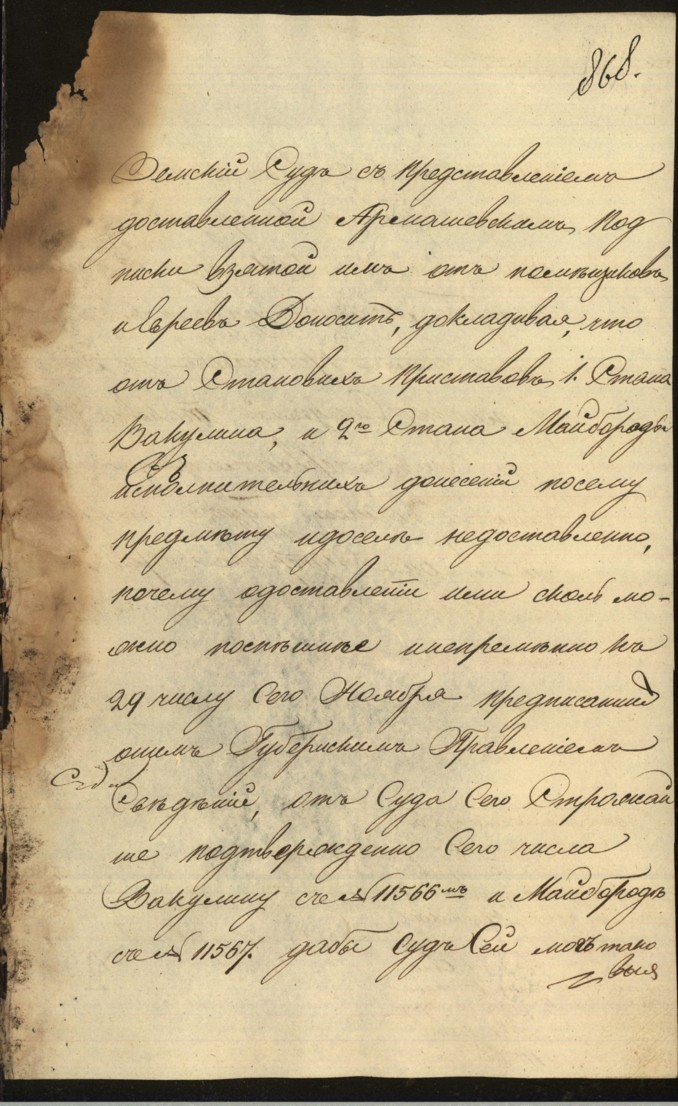 868.
Земскій Судъ съ представленіемъ
доставленной Армашевскимъ под
писки взятой имъ отъ помѣщиковъ
и Евреевъ Доноситъ, докладывая, что
отъ Становихъ Приставовъ, 1. Стана
Вакулина, и 2го Стана Майбороды
исполнительнихъ донесеній посему
предмѣту идосель недоставленно,
почему одоставленіи ими сколь мо-
жно поспѣшнѣе инепремѣнно къ
29 числу Сего Ноября предписанній
онимъ Губернскимъ Правленіемъ
Свѣдѣній, отъ Суда Сего Строжай
ше подтверждено Сего числа
Вакулину съ № 11566мъ и Майбородѣ
съ № 11567. дабы Судъ Сей могъ тако
выя